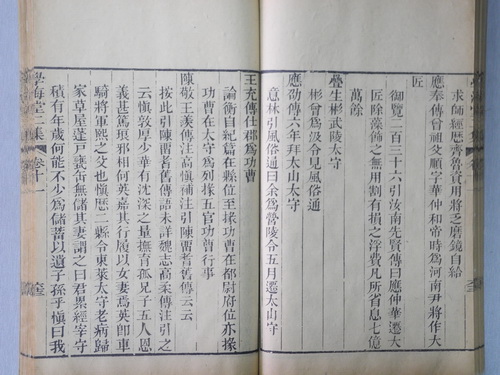 求師經歷齊魯資用將乏磨鏡自給
應奉傳曾祖父順字華仲和帝時爲河南尹將作大
匠
御覽二百三十六引汝南先賢傳曰應仲華遷大
匠除藻倫之無用割有損之浮費凡所省息七億
萬餘
疊生彬武陵太守
彬曾爲汲令見風俗通
應劭傳六年拜太山太守
意林引風俗通曰余爲營陵令五月遷太山守
王充傳仕郡爲功曹
論衡自紀篇在縣位至掾功曹在都尉府位亦掾
功曹在太守爲列掾五官功曹行事
陳敬王羨傳注高愼引陳畱耆舊傳云云
按此引陳畱耆舊傳語未詳魏志高柔傳注引之
云愼敦厚少華有沈深之量撫育孤兄子五人恩
義甚篤琅邪相何英嘉其行履以女妻焉英卽車
騎將軍熙之父也愼歷二縣令東萊太守老病歸
家草屋蓬戸甕缶無儲其妻謂之曰君累經宰守
積有年歲何能不少爲儲蓄以遺子孫乎愼曰我
學海堂二集 卷十一